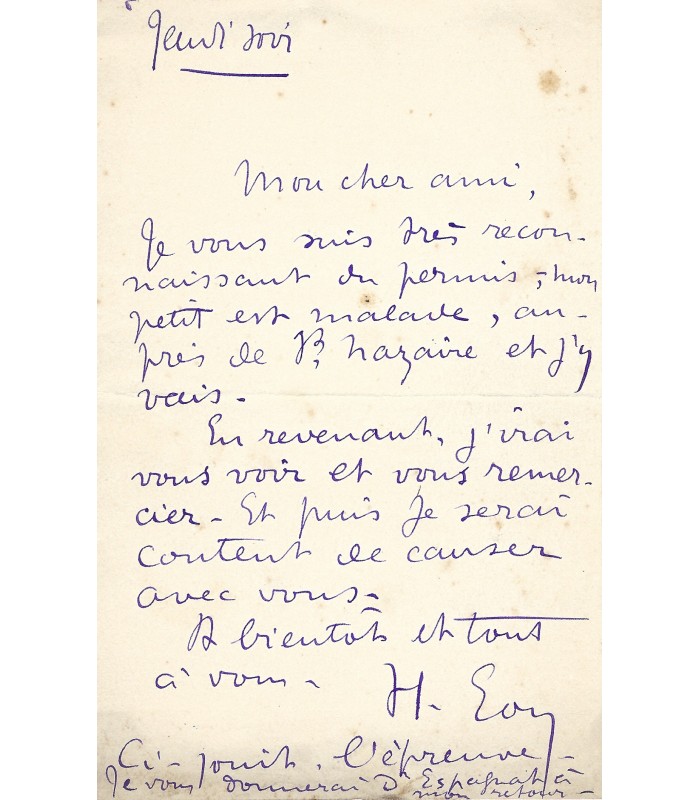 Jeudi soir
Mon cher ami,
Je vous suis très recon-
naissant du permis ; mon
petit est malade, au-
près de St Nazaire et j'y
vais -
En revenant, j'irai
vous voir et vous remer-
cier - Et puis je serai
content de causer
avec vous -
A bientôt et tout
à vous -
H.
Ci-joint, l'épreuve -
Je vous donnerai D'Espagnat à
mon retour -